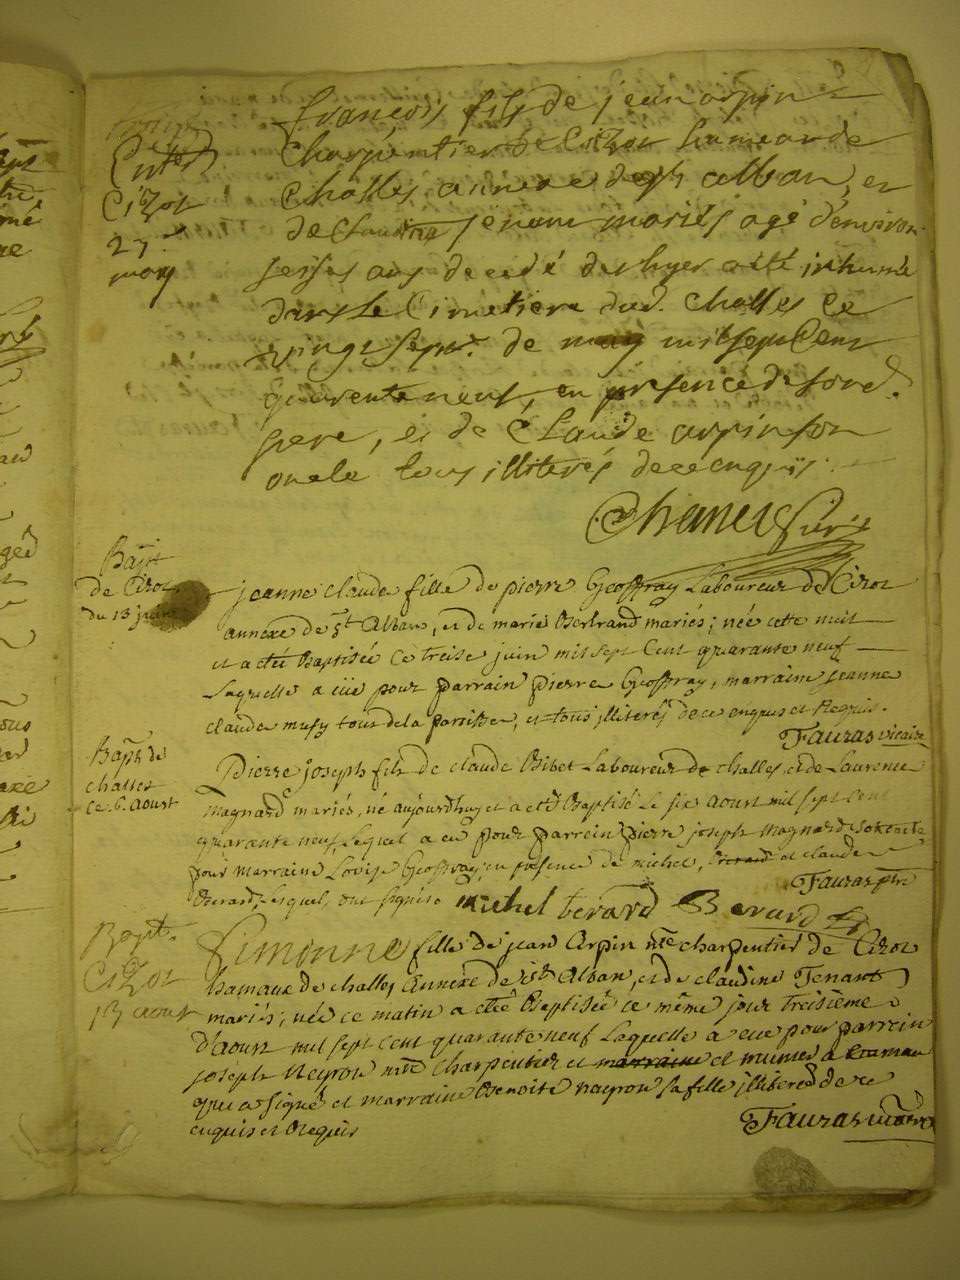 Enter.t
Cizot
27
may
françois fils de jean arpin
charpentier de Cizot hameau de
Challes annexe de st alban, et
de Claudine tenant mariés agé d'environ
seises ans decedé dhyer a été inhumé
dans le Cimetiere dud. Challes ce
vingt sept.e de may mil sept Cent
quarente neuf, en presence de sond.
pere, et de Claude arpin son
oncle tous illiterés de ce enquis.
Bapt
de Cizot
du 13 juin
jeanne claude fille de pierre Geoffray Laboureur de Cizot
annexe de st Alban, et de marie Bertrand mariés; née cette nuit
et a eté Baptisée Ce treise juin mil sept Cent quarante neuf
Laquelle a eüe pour parrain pierre Geoffray, marraine jeanne
claude musy tous de la paroisse, et tous illiterés de ce enquis et Requis.
Fauras vicaire
Bapt de
challes
ce 6 aoust
Pierre joseph fils de claude Bibet Laboureur de challes et de Laurence
magnard mariés, né aujourdhuy et a eté Baptisé Le six aoust mil sept cent
quarante neuf, Lequel a eu pour parrein pierre joseph magnard
pour marraine Louise Geoffray, en presence de michel, et claude
Berard, Lesquel ont signés
Fauras ptre
michel berard Berard
Bapt.
Cizot
13 aoust
Simonne fille de jean Arpin mtre charpentier de Cizot
hamaux de challes Annexe de st Alban, et de claudine Tenant
mariés, née ce matin a eté Baptisée ce même jour treisieme
d'aoust mil sept cent quarante neuf Laquelle a eue pour parrein
joseph Neyron mtre charpentier et marraine et
qui a signé et marraine Benoite nayron sa fille illiteré de ce
enquis et Requis
Fauras vicaire